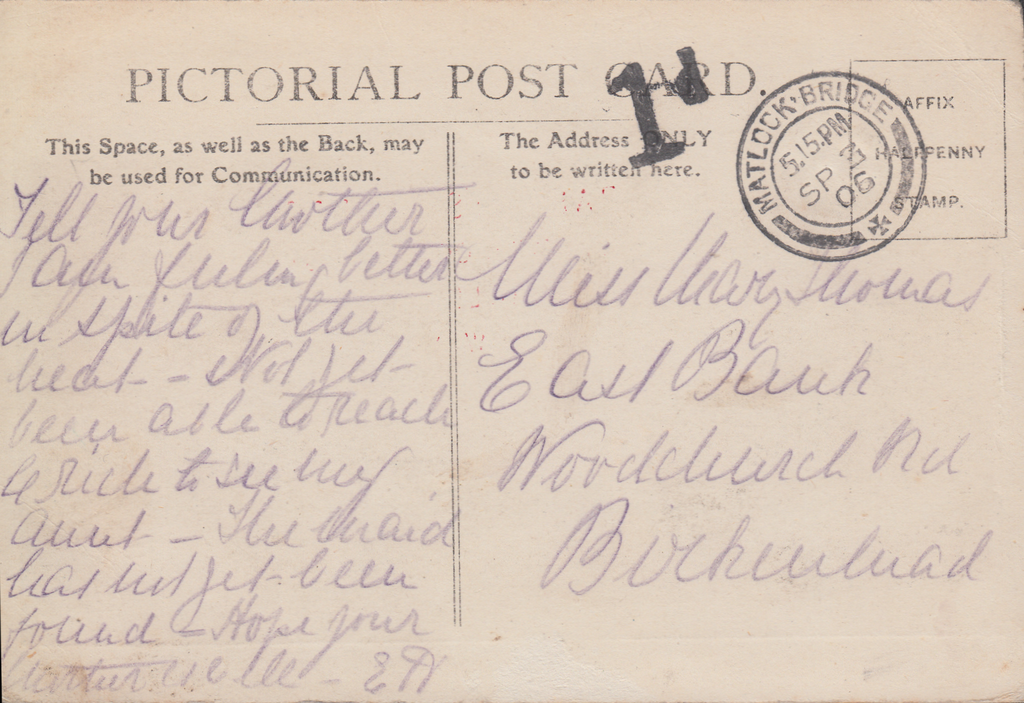 PICTORIAL POST CARD.
1d
MATLOCK·BRIDGE
5.15.PM
SP 4
06
AFFIX
HALFPENNY
STAMP.
This Space, as well as the Back, may
be used for Communication.
The Address ONLY
to be written here.
Tell your Mother
I am feeling better
in spite of the
heat - Not yet
been able to reach
to see my
Aunt - The maid
has not yet been
found - Hope your
well - EH
Miss Mary Thomas
East Bank
Woodchurch Rd
Birkenhead